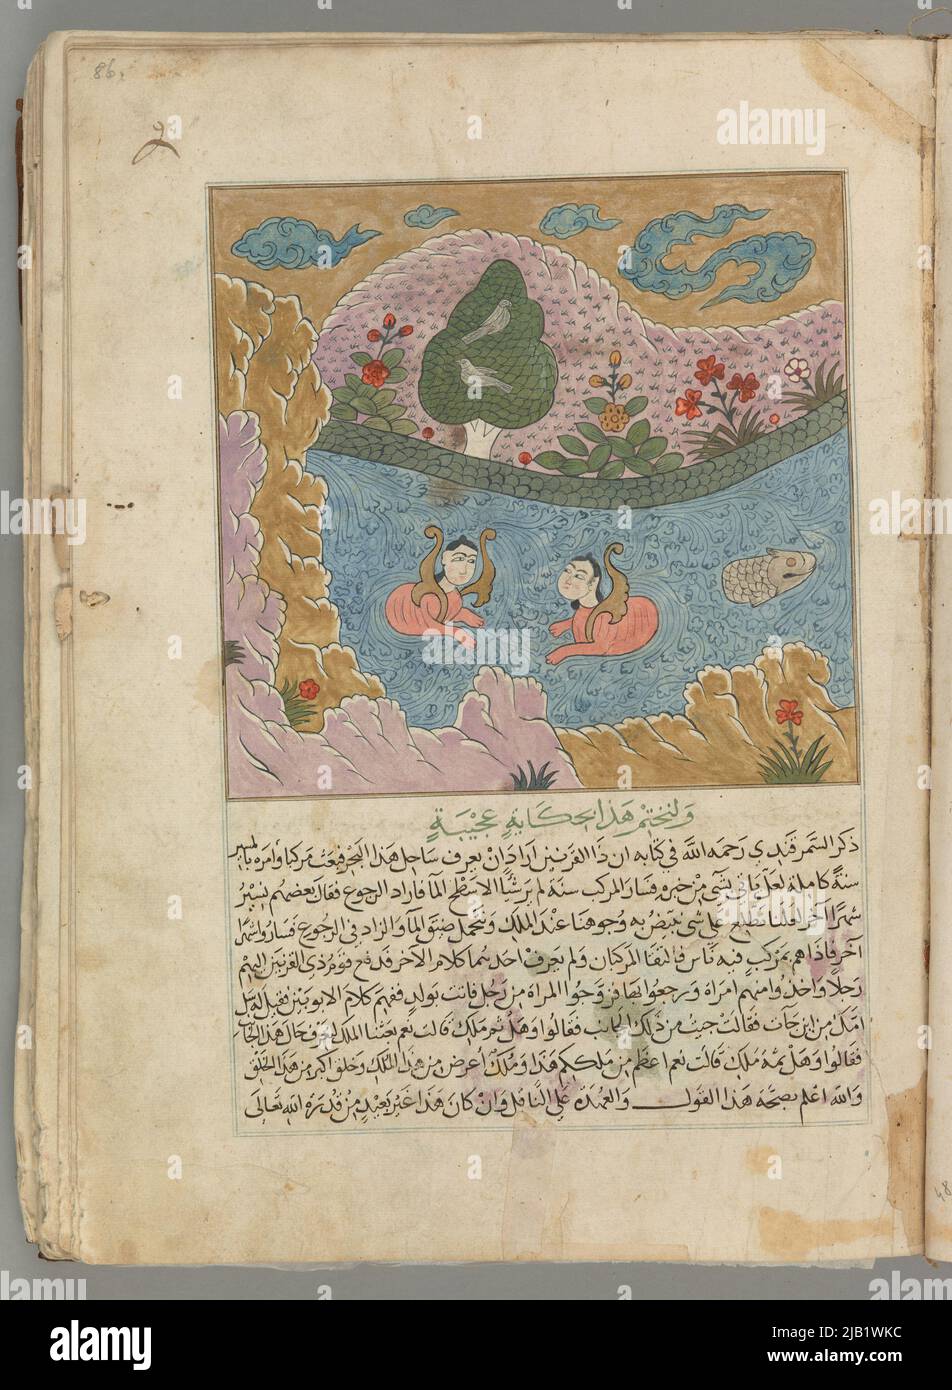 86
ولنختم هذا بحكاية عجيبة
ذكر السمرقندي رحمه الله في كتابه ان ذا القرنين اراد ان يعرف ساحل هذا البحر فبعث مركبا وامره بالمسير
سنة كاملة لعل ياتي بشيء من خبره فسار المركب سنة لم ير شيا الا سطح الما فاراد الرجوع فقال بعضهم نسير
شهرا اخر لعلنا نطلع على شي نبيض به وجوهنا عند الملك ونتحمل ضيق الماء والزاد في الرجوع فساروا شهرا
آخر فاذا هم بمركب فيه ناس فالتقا المركبان ولم يعرف احد منهما كلام الآخر فدفع قوم ذي القرنين اليهم
رجلا واخذوا منهم امراة ورجعوا بها فزوجوا المراة من رجل فاتت بولد ففهم كلام الابوين فقيل له سل
امك من اين جات فقالت جيت من ذلك الجانب فقالوا وهل ثم ملك قالت نعم بعثنا الملك لنعرف حال هذا الجانب
فقالوا وهل ثمة ملك قالت نعم اعظم من ملككم هذا وملكه اعرض من هذا الملك وخلق اكبر من هذا الخلق
والله اعلم بصحة هذا القول والعهدة على الناقل وان كان هذا غير بعيد من قدرة الله تعالى
48
alamy
Image ID: 2JB1WKC
www.alamy.com